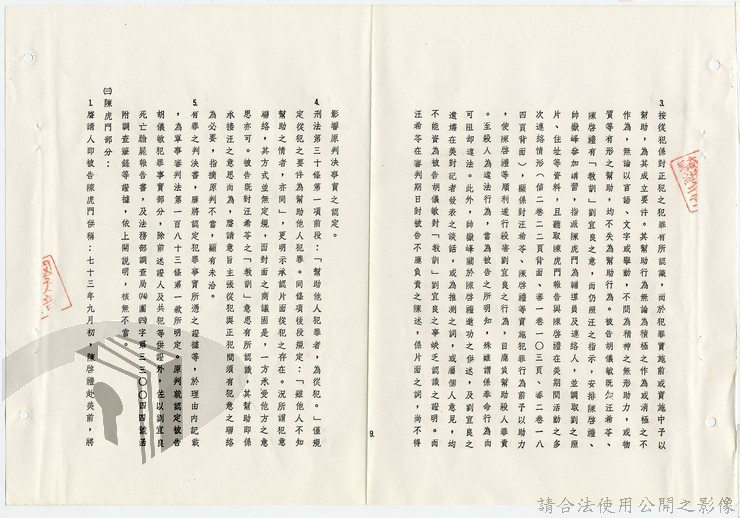 3.按從犯係對正犯之犯罪有所認識，而於犯罪實施前或實施中予以
幫助，為其成立要件。其幫助行為無論為積極之作為或消極之不
作為，無論以言語、文字或舉動，不問為精神之無形助力，或物
質等有形之幫助，均不失為幫助行為。被告胡儀敏既知汪希苓、
陳啓禮有「教訓」劉宜良之意，而仍照汪之指示，安排陳啓禮、
帥嶽峰參加講習，指派陳虎門為輔導員及連絡人，並調取劉之照
片、住址等資料，且聽取陳虎門報告與陳啓禮在美期間活動之多
次連絡情形（偵二卷二二頁背面、審一卷一○三頁、審二卷一八
四頁背面），顯係對汪希苓、陳啓禮等實施犯罪行為前予以助力
，使陳啓禮等順利遂行殺害劉宜良之行為，自應負幫助殺人罪責
。至殺人為違法行為，當為被告之所明知，殊難謂係奉命行為而
可阻却違法。此外，帥嶽峰關於陳啓禮邀功之供述，及劉宜良之
遺孀在美對記者發表之談話，或為推測之詞，或屬個人意見，均
不能資為被告胡儀敏對「教訓」劉宜良之事缺乏認識之證明。而
汪希苓在審判期日對被告不應負責之陳述，係片面之詞，尚不得
9.
影響原判決事實之認定。
4.刑法第三十條第一項前段：「幫助他人犯罪者，為從犯。」僅規
定從犯之要件為幫助他人犯罪。同條項後段規定：「雖他人不知
幫助之情者，亦同」，更明示承認片面從犯之存在。況所謂犯意
聯絡，其方式並無定規，面對面之商議固是，一方承受他方之意
思亦可。被告既對汪希苓之「教訓」意思有所認識，其幫助即係
承接汪之意思而為，聲請意旨主張從犯與正犯間須有犯意之聯絡
為必要，指摘原判不當，顯有未洽。
5.有罪之判決書，應將認定犯罪事實所憑之證據等，於理由內記載
，為軍事審判法第一百八十三條第一款所明定。原判就認定被告
胡儀敏犯罪事實部分，除前述證人及共犯等供證外，佐以劉宜良
死亡驗屍報告書，及法務部調查局㈣團㈣字第三三○○四四號函
附調查筆錄等證據，依上開說明，核無不當。
㈢陳虎門部分：
1.聲請人即被告陳虎門供稱：七十三年九月初，陳啓禮赴美前，將
請合法使用公開之影像